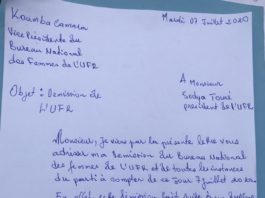 Koumba Camara
Mardi 07 Juillet 2020
Vice Présidente du
Bureau National
des Femmes de L'UFR
A Monsieur
Sidya Touré
président de l'UFR
Objet : Demission de
L'UFR
Monsieur, je viens par la présente lettre vous
adresser ma demission du Bureau National
des femmes de l'UFR et de toutes les instances
du parti à compter de ce jour 7 juillet 2020.
En effet cette demission fait suite à